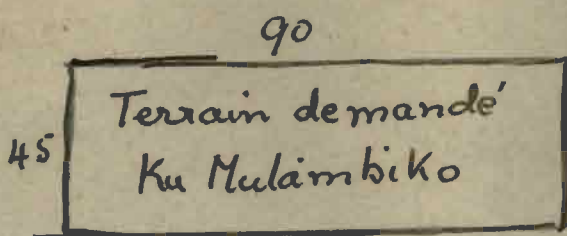 90
Terrain demandé
45
Ku Mulambiko